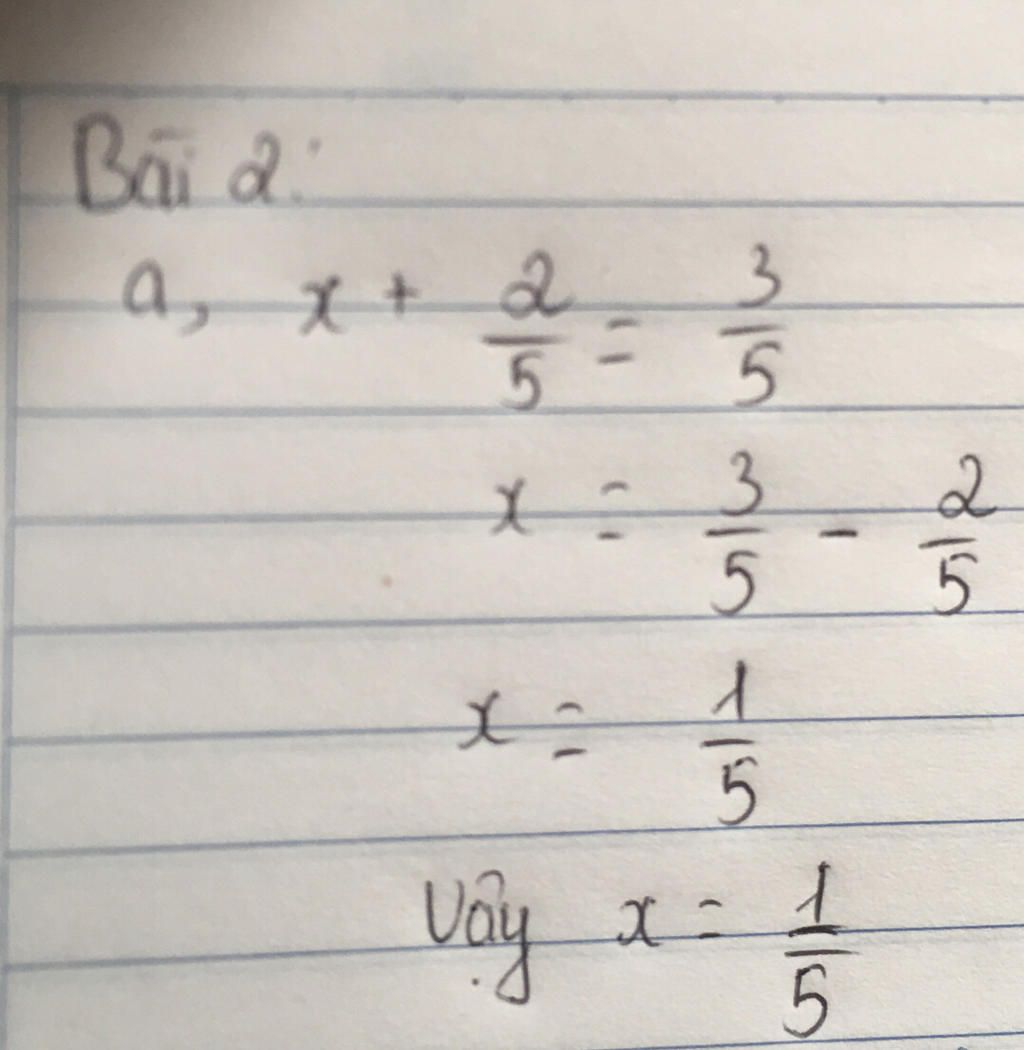 Bài 2:
a, x + 2/5 = 3/5
x = 3/5 - 2/5
x = 1/5
Vậy x = 1/5